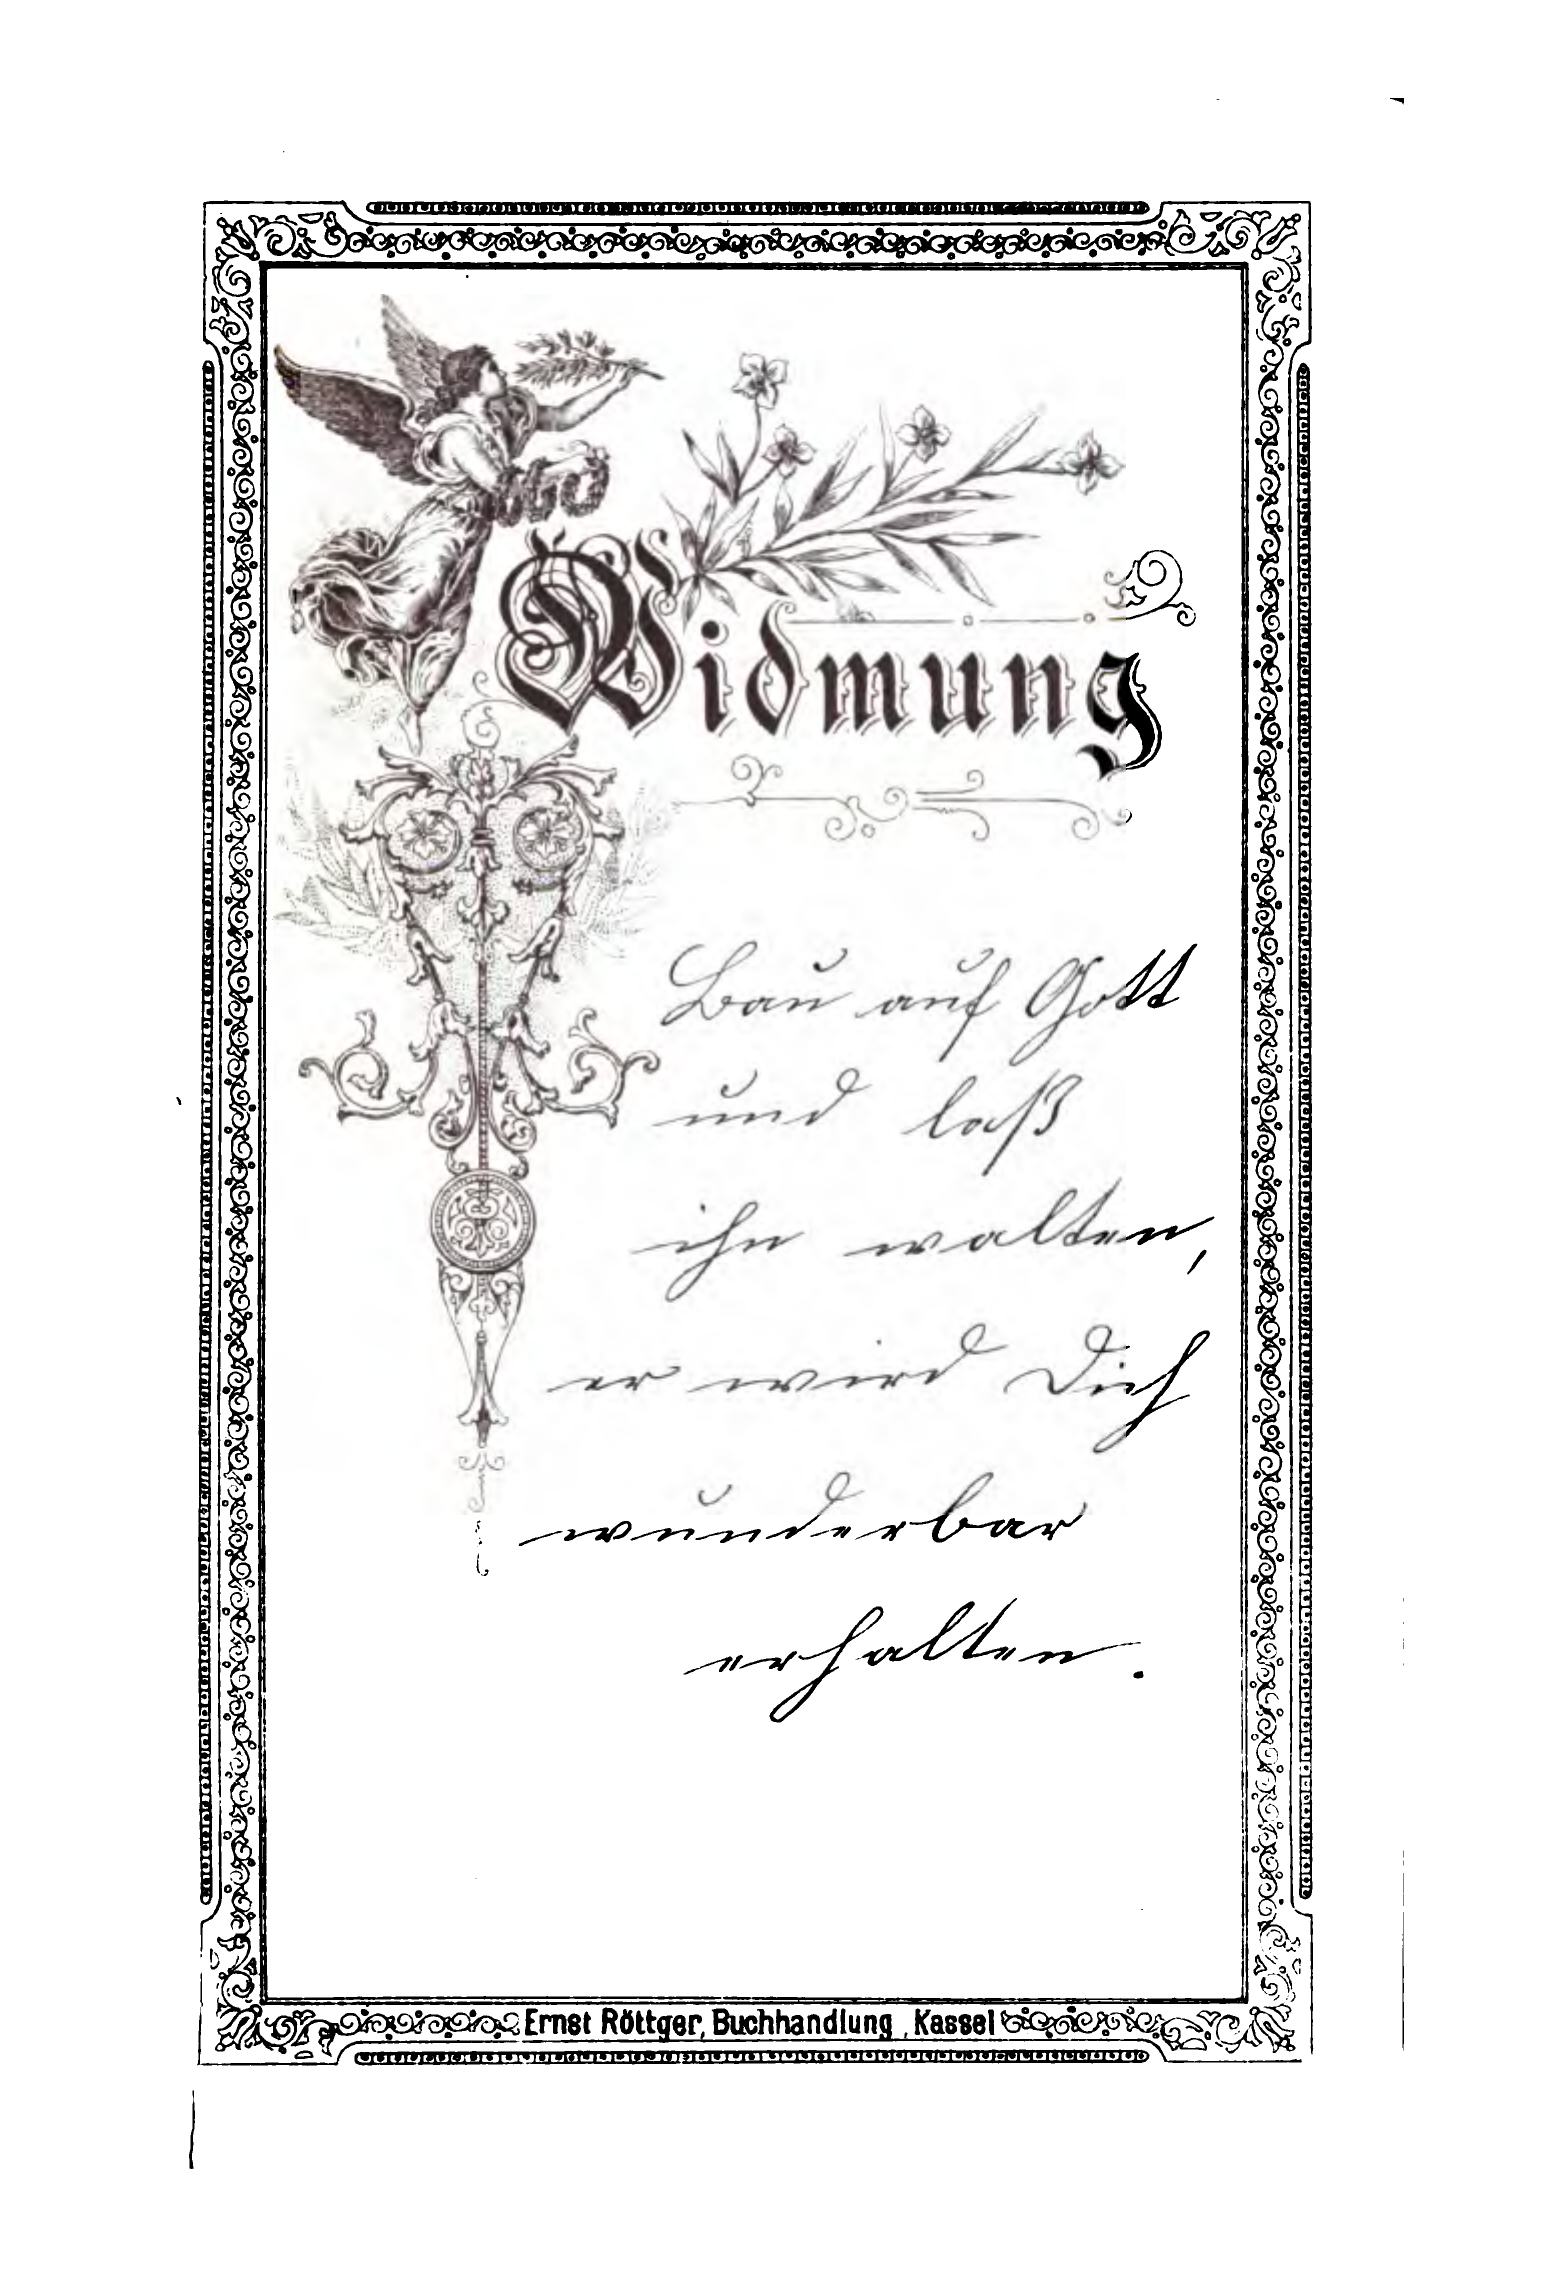 Widmung
Bau auf Gott
und laß
ihn walten,
er wird Dich
wunderbar
erhalten.
Ernst Röttger, Buchhandlung, Kassel